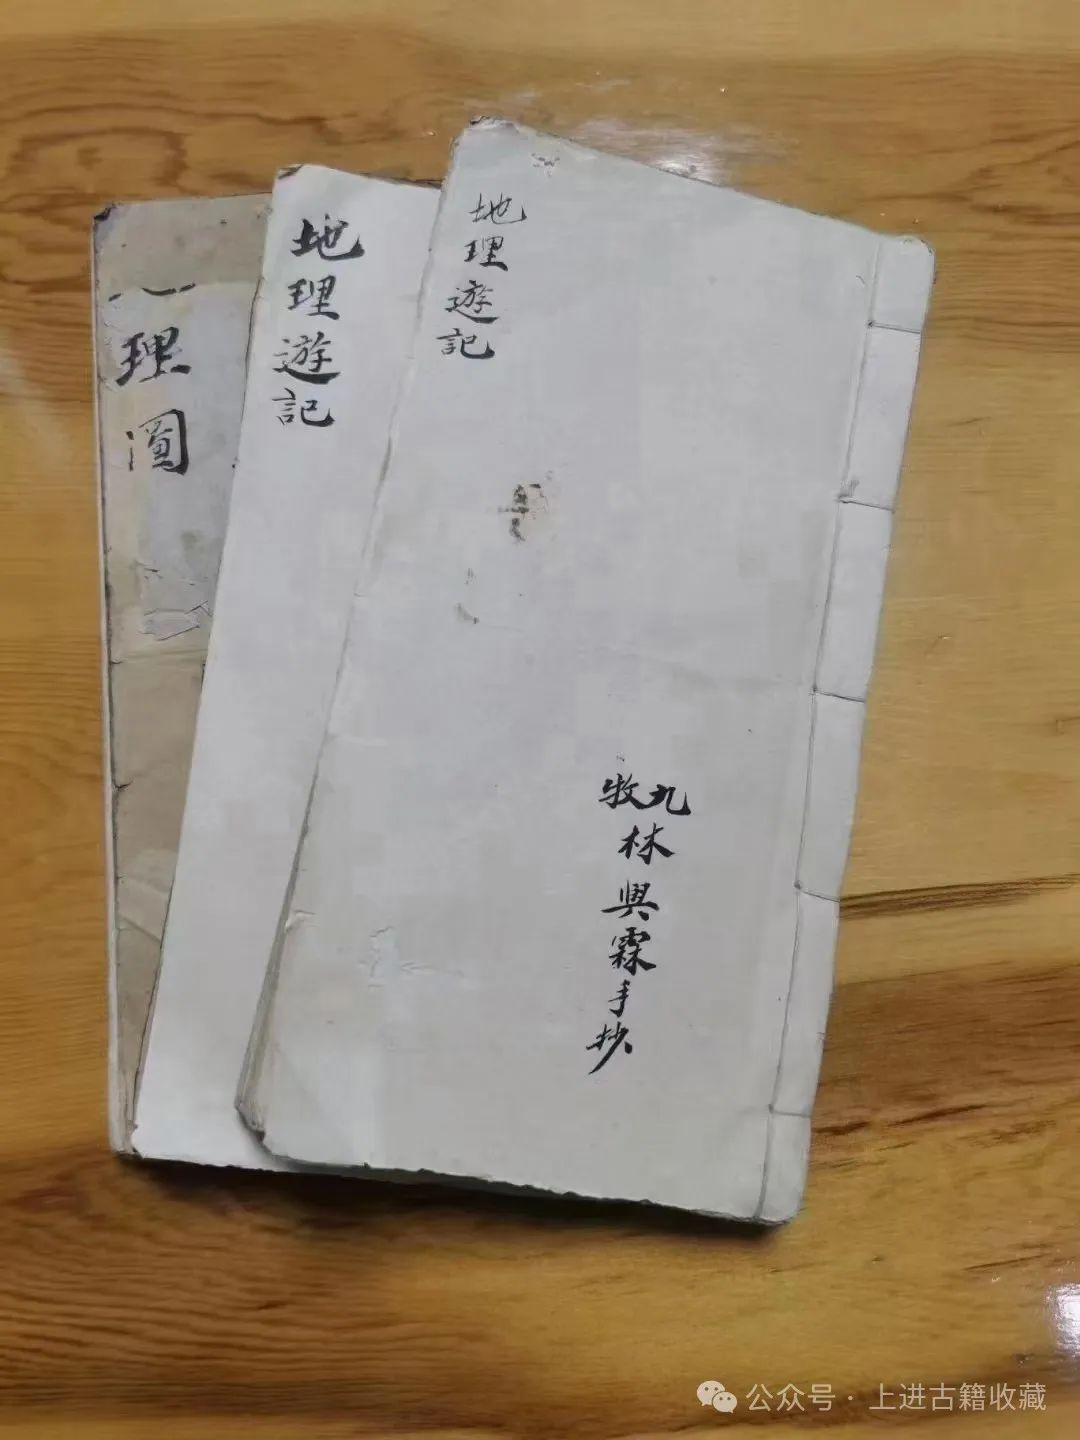 地理遊記
九牧林興霖手抄
地理遊記
理圖
公众号·上进古籍收藏